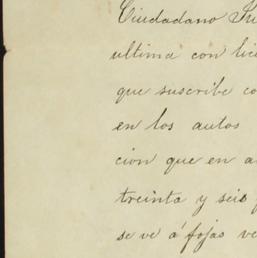 Ciudadano Ju
ultima con lic
que suscribe co
en los autos
cion que en a
treinta y seis
se ve á fojas ve